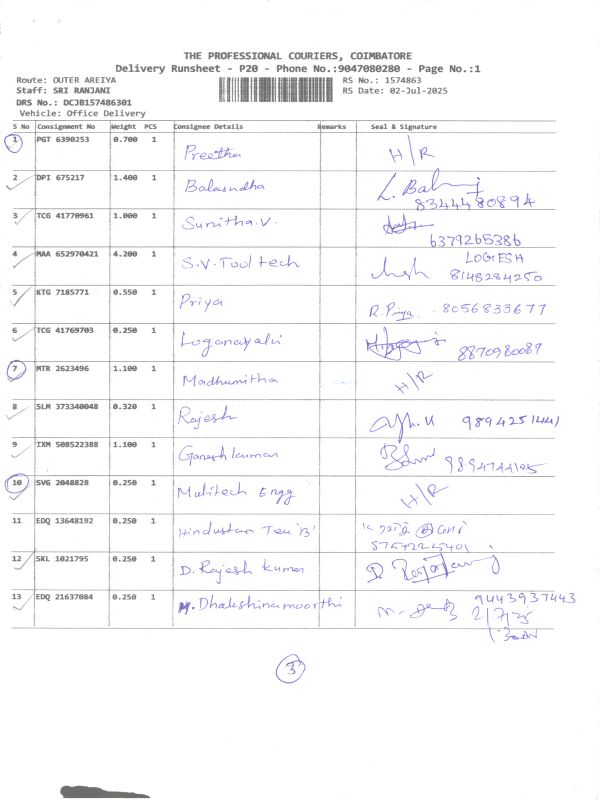 THE PROFESSIONAL COURIERS, COIMBATORE
Delivery Runsheet - P20 - Phone No.:9047080280 - Page No.:1
Route: OUTER AREIYA RS No.: 1574863
Staff: SRI RANJANI RS Date: 02-Jul-2025
DRS No.: DCJB157486301
Vehicle: Office Delivery
S No Consignment No Weight PCS Consignee Details Remarks Seal & Signature
1 PGT 6390253 0.700 1 Preetha H/R
2 DPI 675217 1.400 1 Balasudha
8344480894
3 TCG 41770961 1.000 1 Sunitha.V.
6379265386
4 MAA 652970421 4.200 1 S.V. Tooltech LOGESH
8148284250
5 KTG 7185771 0.550 1 Priya R. Priya. 8056833677
6 TCG 41769703 0.250 1 Loganayaki
8870980087
7 MTR 2623496 1.100 1 Madhumitha H/R
8 SLM 373340048 0.320 1 Rajesh 9894251441
9 IXM 508522388 1.100 1 Ganeshkumar
10 SVG 2048828 0.250 1 Multitech Engg H/R
11 EDQ 13648192 0.250 1 Hindustan Tex 'B'
12 SKL 1021795 0.250 1 D. Rajesh kumar
13 EDQ 21637084 0.250 1 M. Dhakshinamoorthi 9443937443
3